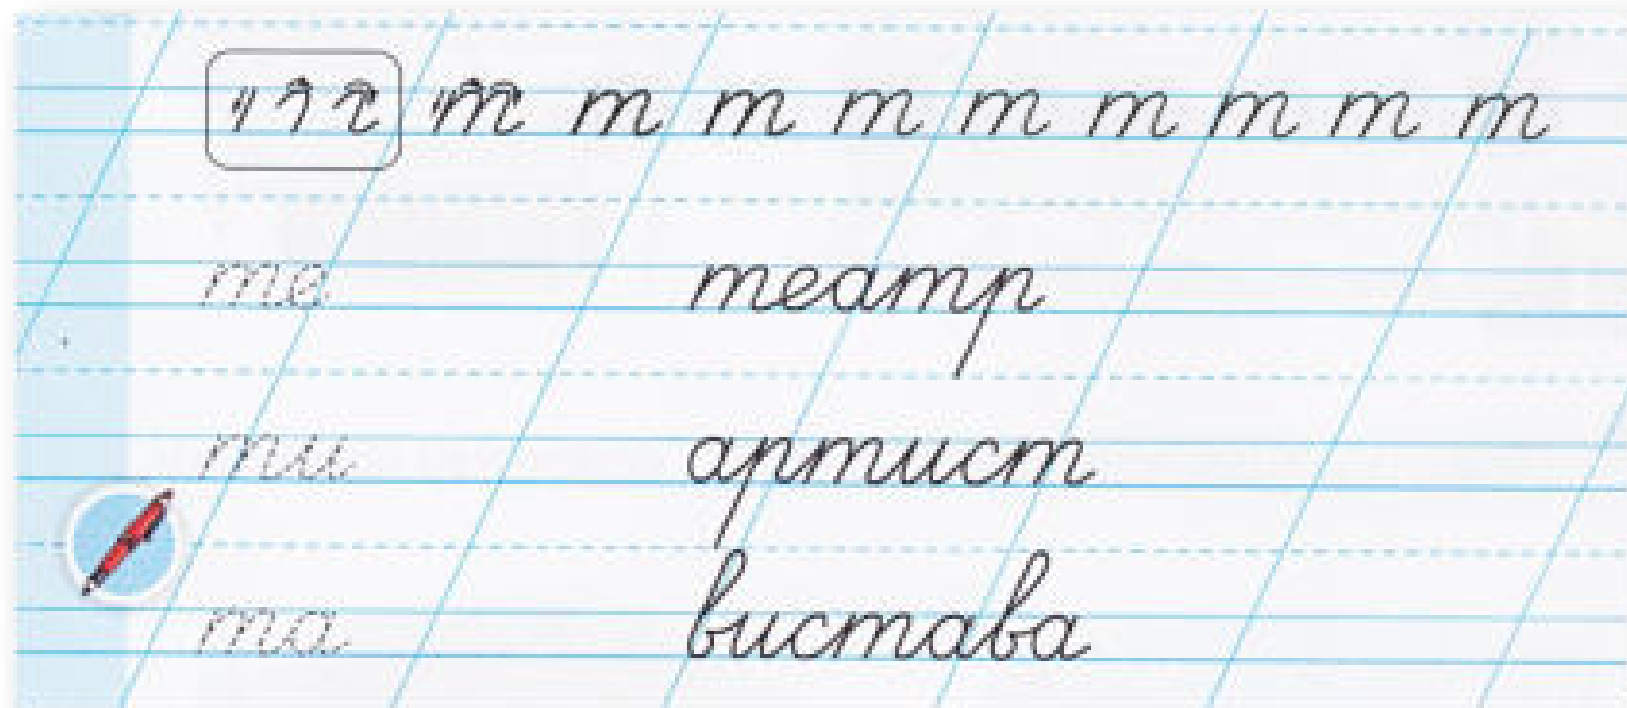 т т т т т т т т т
те театр
ти артист
та вистава